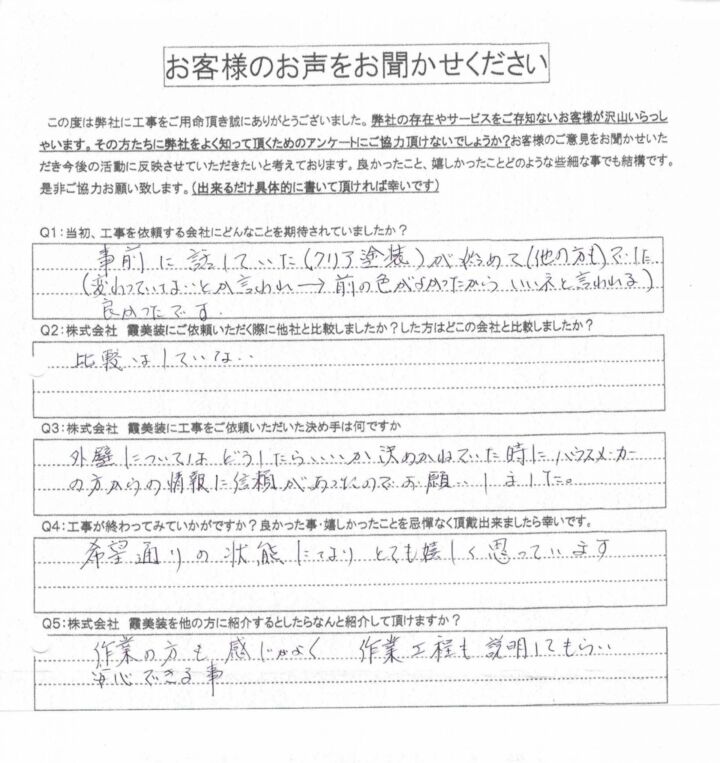 お客様のお声をお聞かせください
この度は弊社に工事をご用命頂き誠にありがとうございました。弊社の存在やサービスをご存知ないお客様が沢山いらっし
ゃいます。その方たちに弊社をよく知って頂くためのアンケートにご協力頂けないでしょうか?お客様のご意見をお聞かせいた
だき今後の活動に反映させていただきたいと考えております。良かったこと、嬉しかったことどのような些細な事でも結構です。
是非ご協力お願い致します。(出来るだけ具体的に書いて頂ければ幸いです)
Q1:当初、工事を依頼する会社にどんなことを期待されていましたか?
事前に話していた(クリア塗装)が初めて(他の方も)でした
(変わっていない…とか言われ→前の色がよかったからいいネと言われる)
良かったです.
Q2:株式会社 霞美装にご依頼いただく際に他社と比較しましたか?した方はどこの会社と比較しましたか?
比較はしていない
Q3:株式会社 霞美装に工事をご依頼いただいた決め手は何ですか
外壁についてはどうしたらいいか決めかねていた時にハウスメーカー
の方からの情報に信頼があったのでお願いしました。
Q4:工事が終わってみていかがですか?良かった事・嬉しかったことを忌憚なく頂戴出来ましたら幸いです。
希望通りの状態になりとても嬉しく思っています
Q5:株式会社 霞美装を他の方に紹介するとしたらなんと紹介して頂けますか?
作業の方も感じがよく 作業工程も説明してもらい
安心できる事